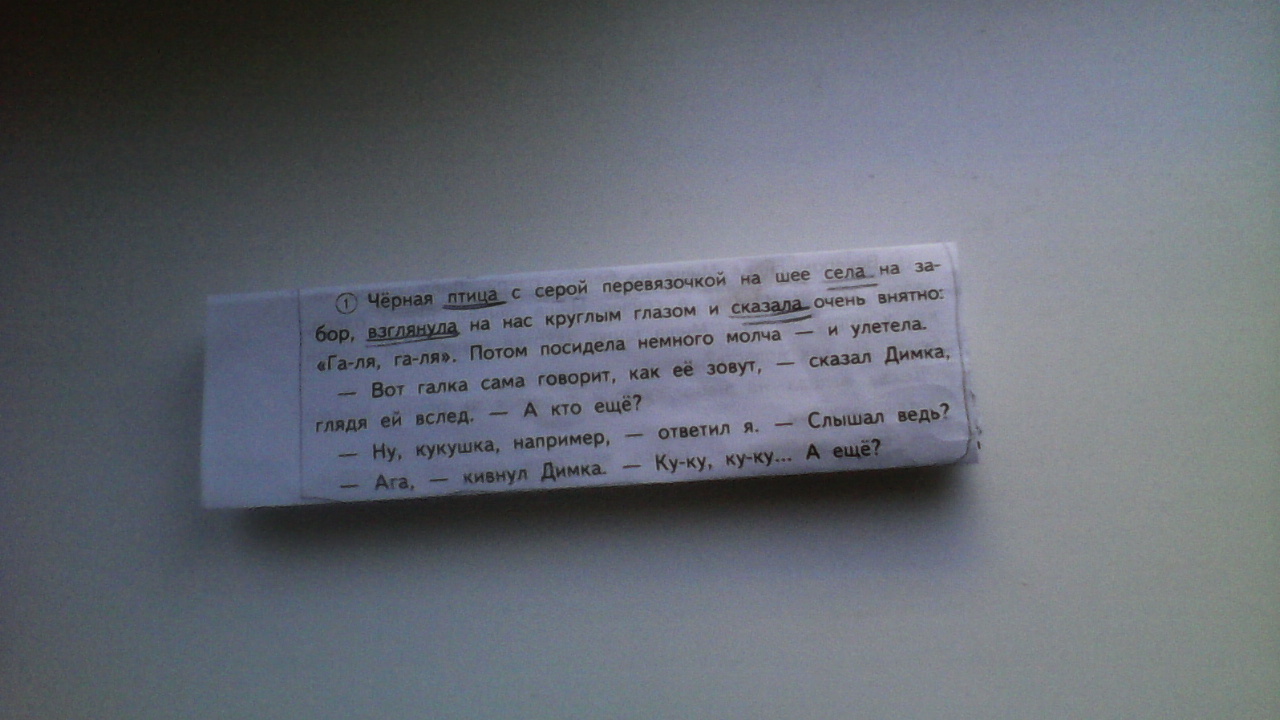 ① Чёрная птица с серой перевязочкой на шее села на за-
бор, взглянула на нас круглым глазом и сказала очень внятно:
«Га-ля, га-ля». Потом посидела немного молча — и улетела.
— Вот галка сама говорит, как её зовут, — сказал Димка,
глядя ей вслед. — А кто ещё?
— Ну, кукушка, например, — ответил я. — Слышал ведь?
— Ага, — кивнул Димка. — Ку-ку, ку-ку... А ещё?